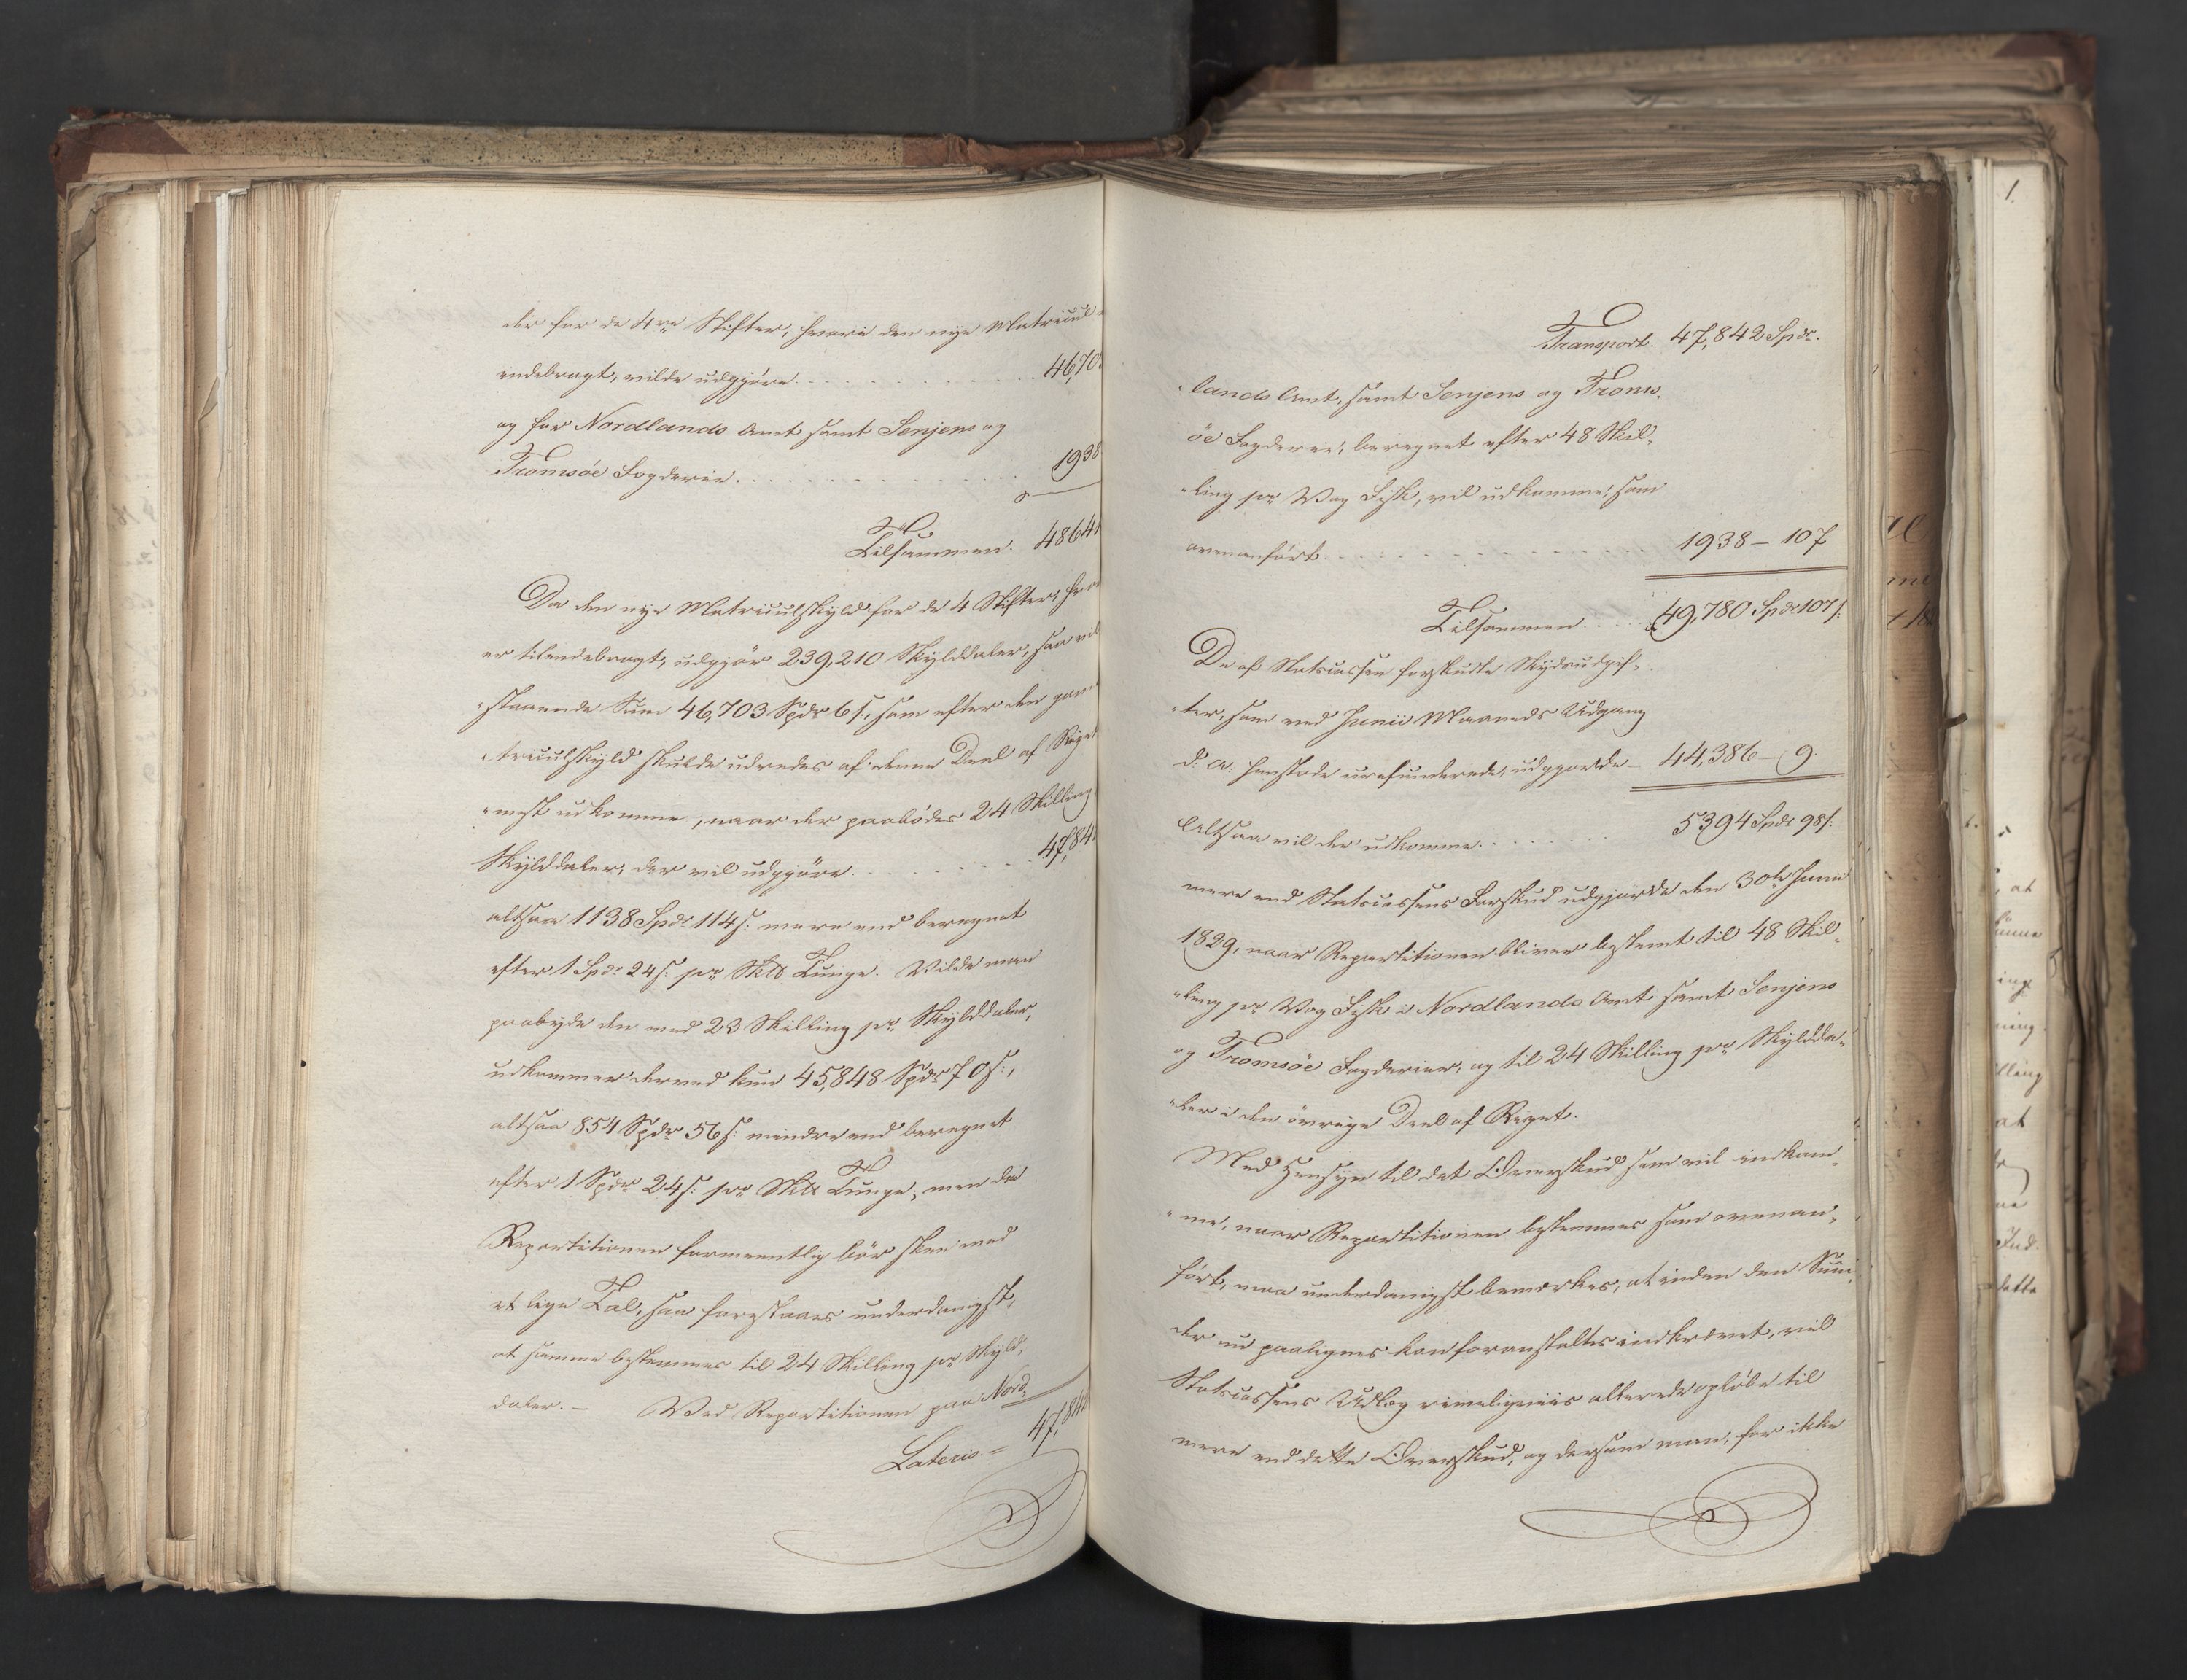 der for de 4re Stifter, hvori den nye Matricul
endebragt, vilde udgjøre . . . . . . . . . . 46,70
og for Nordlands Amt samt Senjens og
Tromsøe Fogderie . . . . . . . . . . 1938
Tilsammen. 4864
Da den nye Matriculskyld for de 4 Stifter, hvor
er tilendebragt, udgjør 239,210 Skylddaler, saa vil
staaende Sum 46,703 Spdr 6 s., som efter den gam
triculskyld skulde udredes af denne Deel af Riget
mest udkomme, naar der paabødes 24 Skilling
Skylddaler, der vil udgjøre . . . . . . 47,84
altsaa 1138 Spdr 114 s: mere end beregnet
efter 1 Spdr 24 s: pr Skld Tunge. Vilde man
paabyde den med 23 Skilling pr Skylddaler,
udkommer derved kun 45,848 Spdr 70 s:,
altsaa 854 Spdr 56 s: mindre end beregnet
efter 1 Spdr 24 s: pr Skld Tunge; men da
Repartitionen formeentlig bør skee med
et lige Tal, saa foreslaaes underdanigst,
at samme bestemmes til 24 Skilling pr Skyld,
daler. – Ved Repartitionen paa Nord,
Lateris = 47,84
Transport. 47,842 Spdr.
lands Amt, samt Senjens og Troms,
øe Fogderie, beregnet efter 48 Skil,
ling pr Vog Fisk, vil udkomme, som
ovenanført . . . . . . . . . . 1938 – 107
Tilsammen . . . . 49,780 Spdr 107 s:
De af Statscassen forskudte Skydsudgif,
ter, som ved Junii Maaneds Udgang
d: A: henstode urefunderede, udgjorde – 44,386 – 9.
Altsaa vil der udkomme . . . . . . . 5394 Spdr 98 s:
mere end Statscassens Forskud udgjorde den 30te Junii
1829, naar Repartitionen bliver bestemt til 48 Skil,
ling pr Vog Fisk i Nordlands Amt samt Senjens
og Tromsøe Fogderier, og til 24 Skilling pr Skyldda,
ler i den øvrige Deel af Riget.
Med Hensyn til det Overskud som vil indkom,
me, naar Repartitionen bestemmes som ovenan,
ført, maa underdanigst bemærkes, at inden den Sum,
der nu paalignes kan foranstaltes indkrævet, vil
Statscassens Udlæg rimeligviis allerede opløbe til
mere end dette Overskud, og dersom man, for ikke